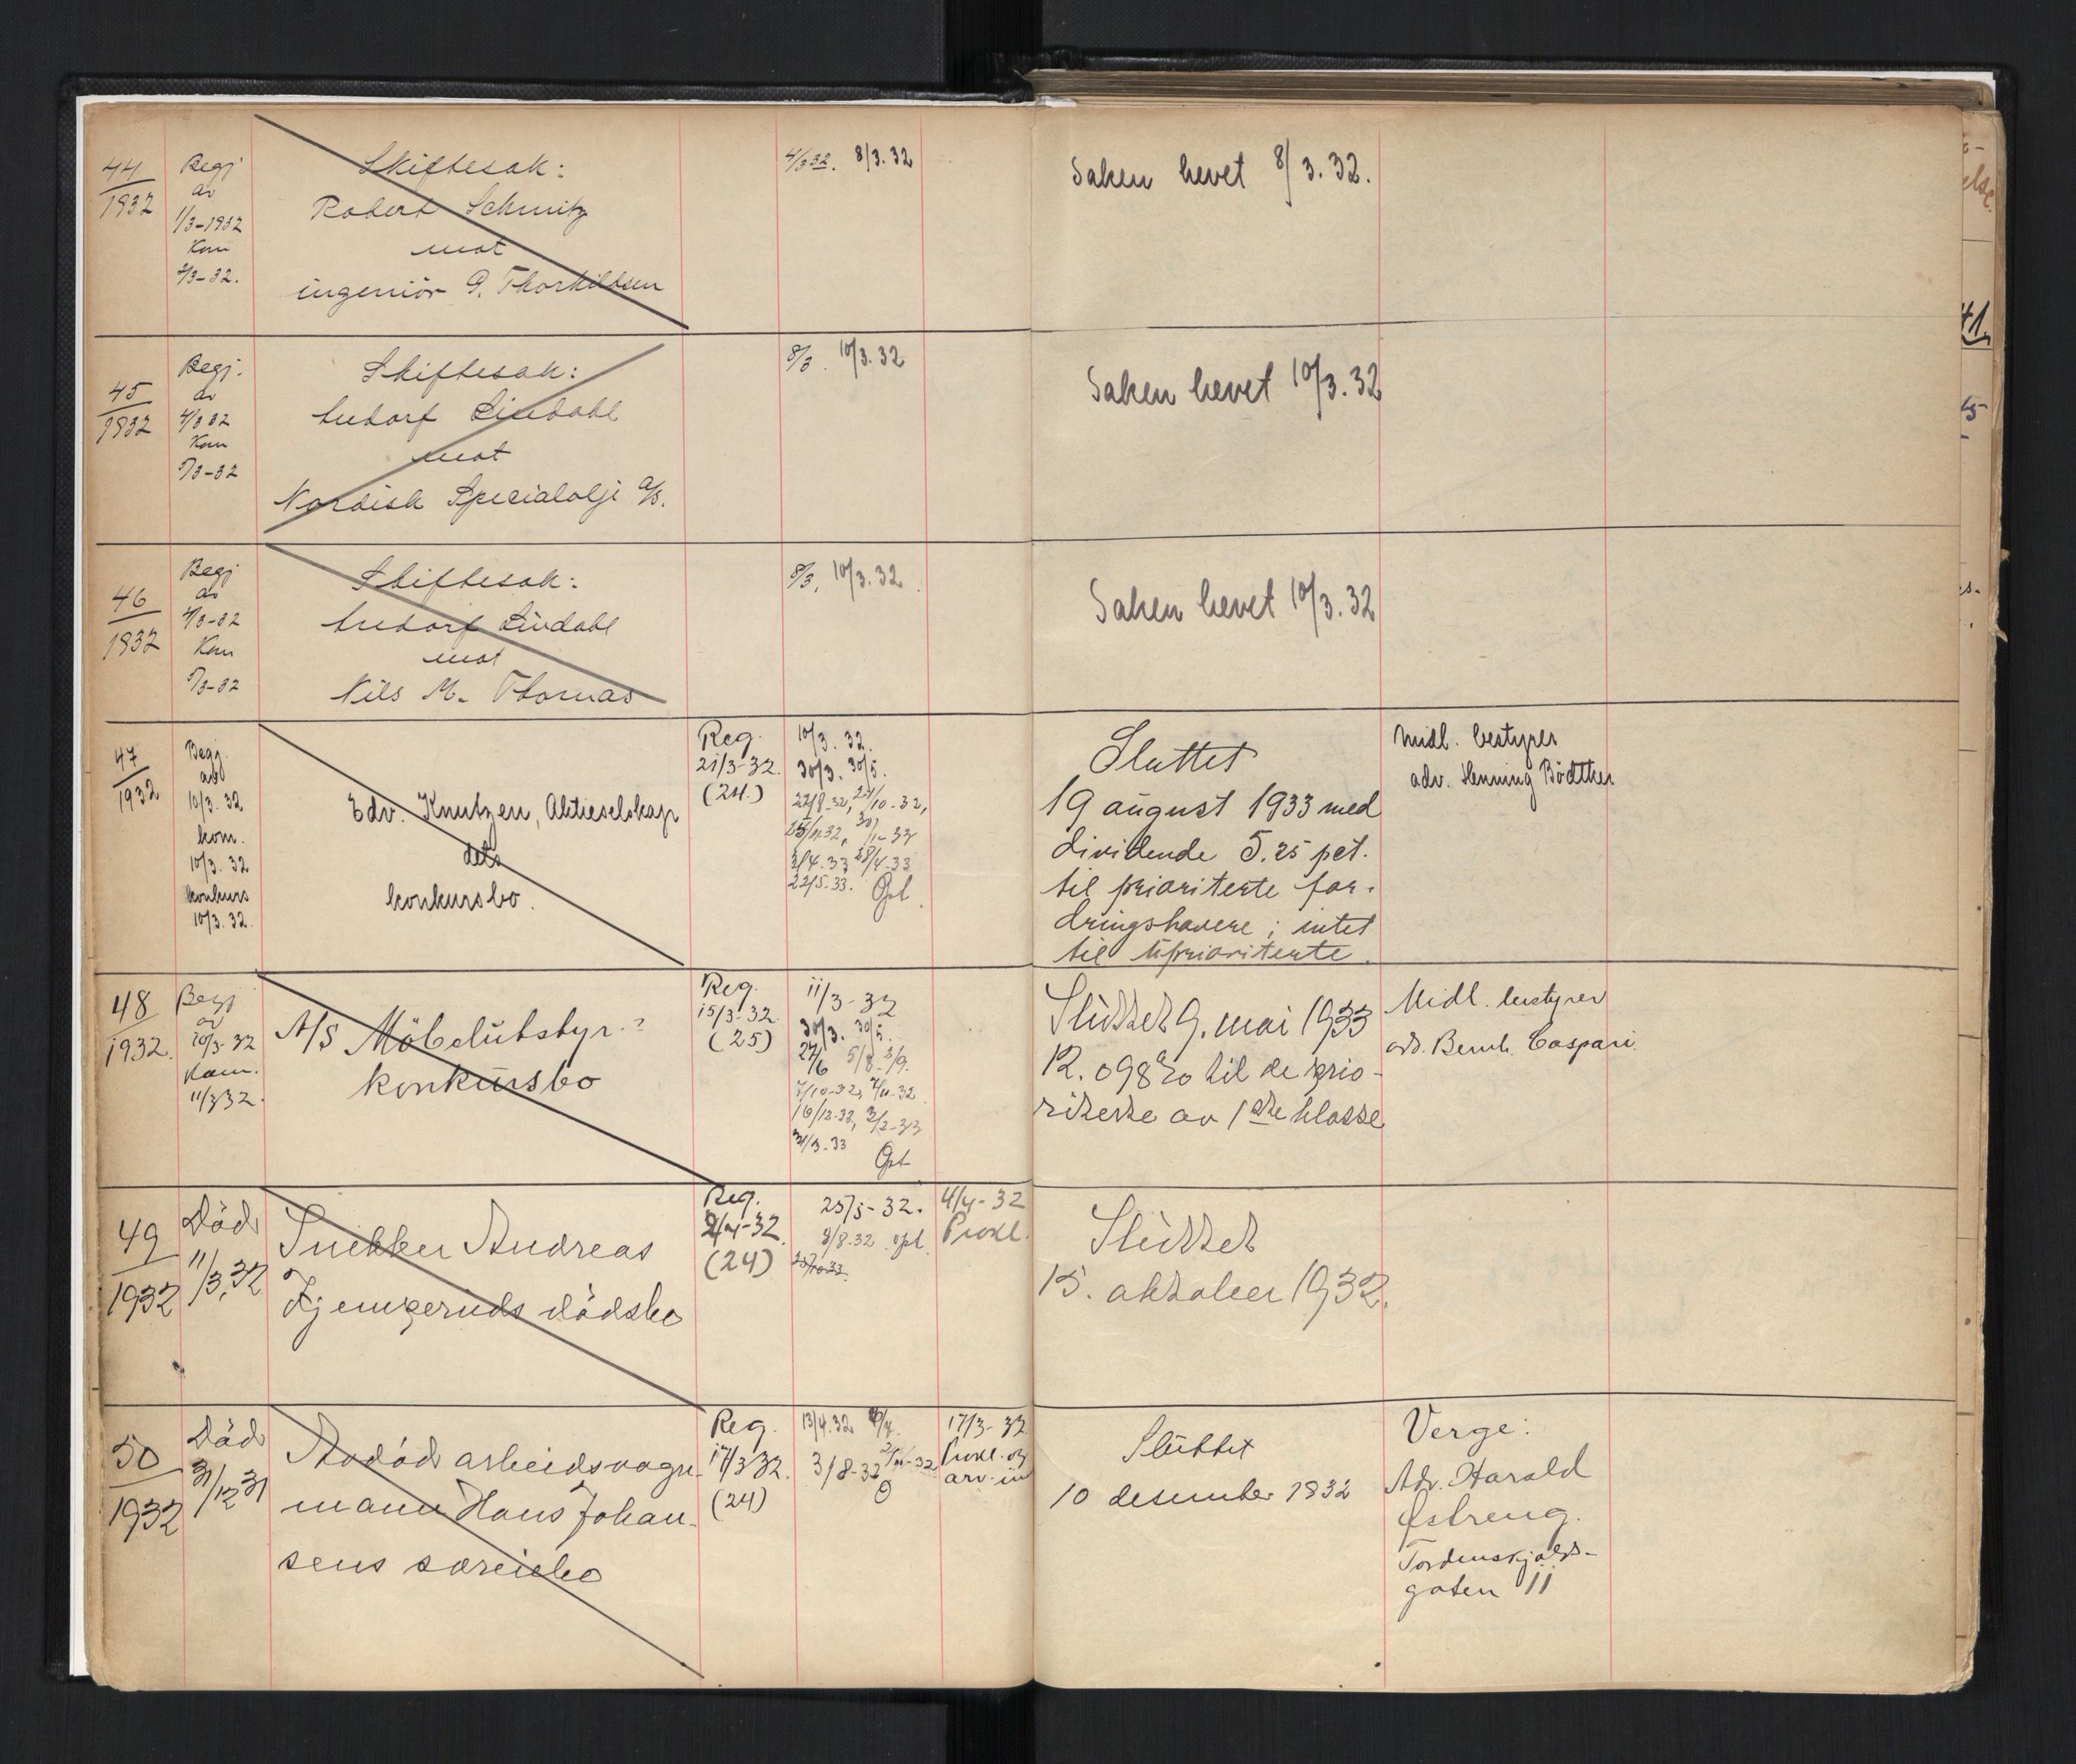 44
1932
Begj
av
1/3-1932
Kom
2/3-32.
Skiftesak:
Robert Schmitz
mot
ingeniör G. Thorkildsen
4/3 32. 8/3. 32
Saken hevet 8/3. 32.
45
1932
Begj.
av
4/3 32
Kom
7/3-32
Skiftesak:
Lindahl
mot
Nordisk Specialolje a/s.
8/3. 10/3. 32
Saken hevet 10/3. 32
46
1932
Begj
av
4/3-32
Kom
7/3-32
Skiftesak:
Lindahl
mot
Nils M. Thomas
8/3, 10/3. 32
Saken hevet 10/3. 32
47
1932
Begj.
av
10/3. 32
kom.
10/3. 32
konkurs
10/3. 32.
Edv. Knutzen, Aktieselskap
dets
konkursbo.
Reg.
21/3-32.
(24.)
10/3. 32.
30/3. 30/5.
22/8-32,
22/5-33.
Sluttet
19 august 1933 med
dividende 5.25 pct.
til prioriterte for-
dringshavere; intet
til uprioriterte.
Midl. bestyrer
adv. Henning Bödtker
48
1932.
Begj
av
10/3-32
Kom.
11/3 32.
A/S Möbelutstyr.
konkursbo
Reg.
15/3-32
(25)
11/3-32
30/3. 30/5.
27/6 5/8- 2/9.
7/10-32,
16/12-32, 3/2-33
31/3-33
Sluttet 9. mai 1933
12.098 til de prio-
riterte av 1ste klasse
Midl. bestyrer
adv. Bernh. Caspari.
49
1932
Död
11/3.32
Snekker Andreas
Kjemperuds dödsbo
Reg.
2/4-32.
(24)
25/5-32.
9/8-32
4/4-32
Prokl.
Sluttet
15. oktober 1932.
50
1932
Död
31/12 31
Avdöd arbeidsvogn-
mann Hans Johan-
sens særeiebo
Reg.
17/3 32.
(24)
13/4.32
3/8-32
17/3-32
Prokl. og
arv. in
Sluttet
10 desember 1932
Verge:
Adv. Harald
Østreng.
Tordenskjolds-
gaten 11